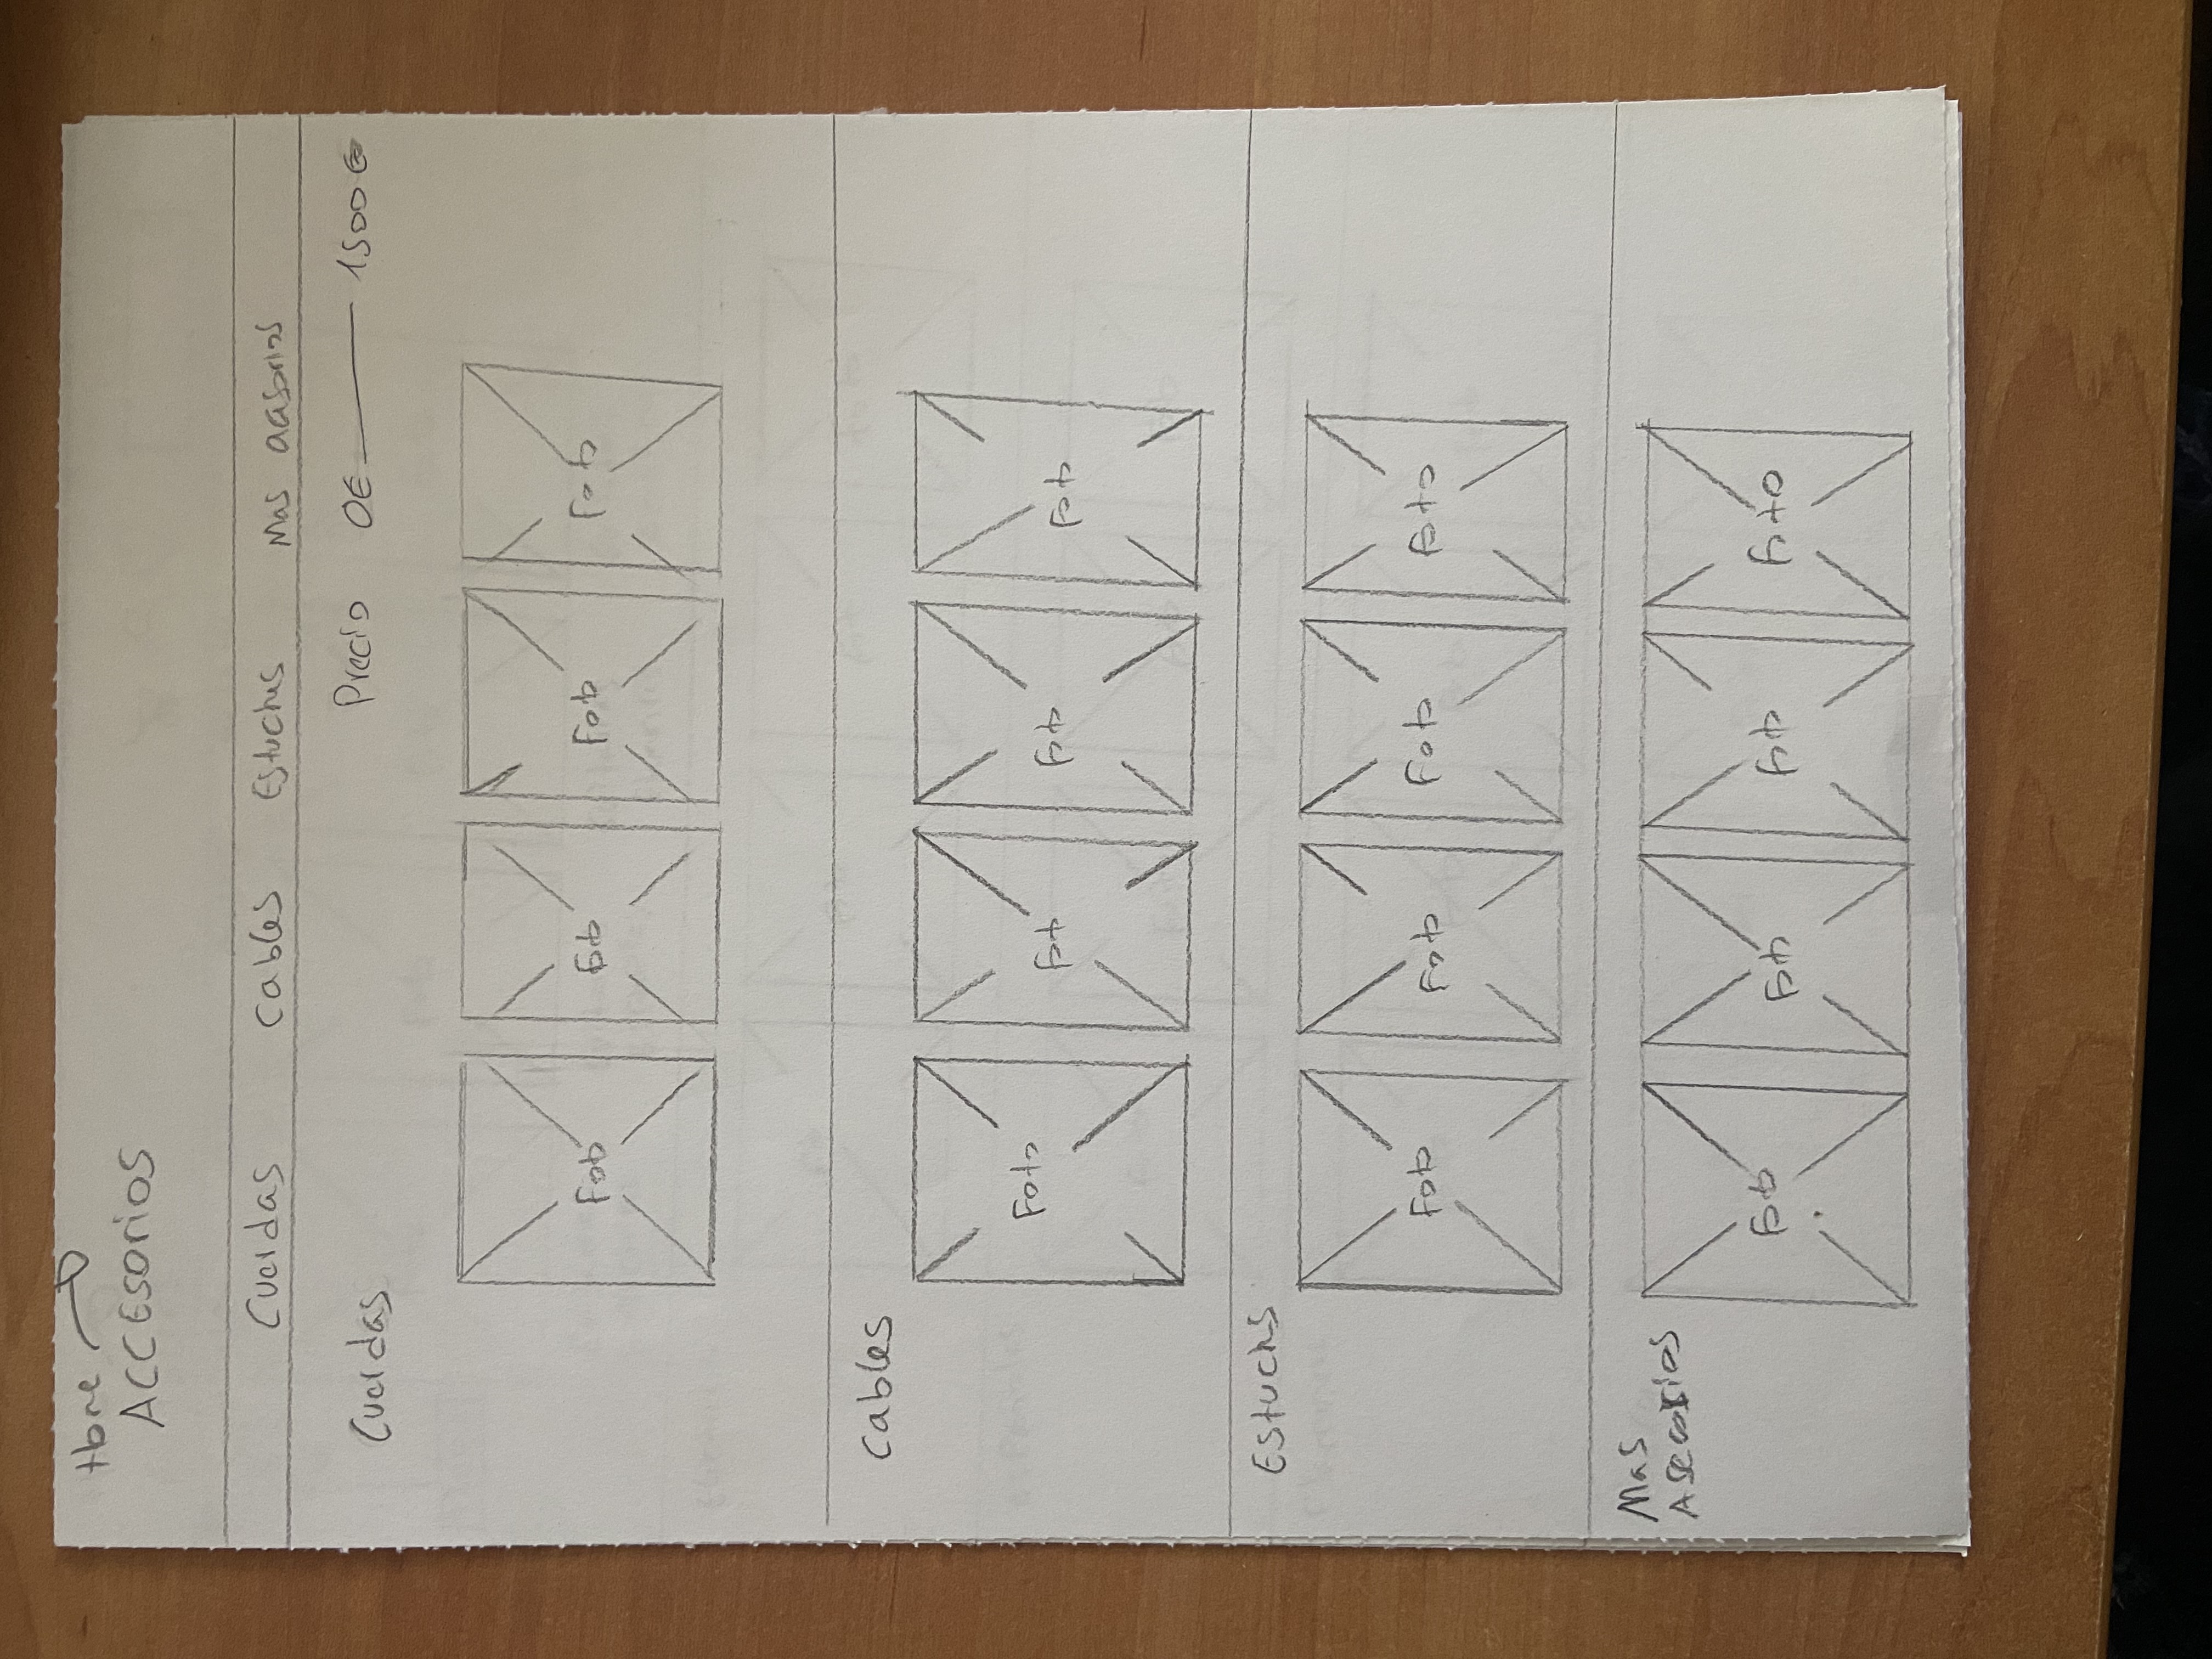 Home
ACCESORIOS
Cuerdas Cables Estuches Mas accesorios
Cuerdas Precio 0€ 1500€
Foto Foto Foto Foto
Cables
Foto Foto Foto Foto
Estuches
Foto Foto Foto Foto
Mas
Asecorios
Foto Foto Foto Foto